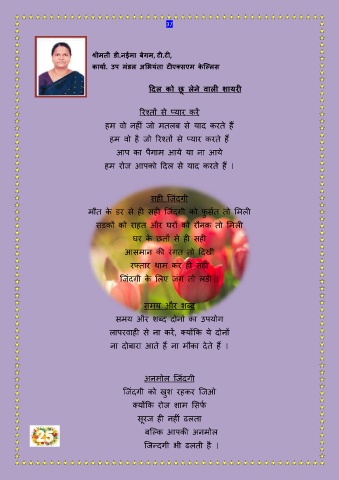 37
श्रीमती डी.नईमा बेगम,टी.टी,
कार्या. उप मंडल अभियंता टीएक्सएम केल्लिस
दिल को छू लेने वाली शायरी
रिश्तों से प्यार करें
हम वो नहीं जो मतलब से याद करते हैं
हम वो है जो रिश्तों से प्यार करते हैं
आप का पैगाम आये या ना आये
हम रोज आपको दिल से याद करते हैं ।
सही जिंदगी
मौत के डर से ही सही जिंदगी को फुर्सत तो मिली
सड़कों को राहत और घरों को रौनक तो मिली
घर के छतों से ही सही
आसमान की रंगत तो दिखी
रफ्तार थाम कर ही सही
जिंदगी के लिए जंग तो लड़ी ।
समय और शब्द
समय और शब्द दोनों का उपयोग
लापरवाही से ना करें, क्योंकि ये दोनों
ना दोबारा आते हैं ना मौका देते हैं ।
अनमोल जिंदगी
जिंदगी को खुश रहकर जिओ
क्योंकि रोज शाम सिर्फ
सूरज ही नहीं ढलता
बल्कि आपकी अनमोल
जिन्दगी भी ढलती है ।
25